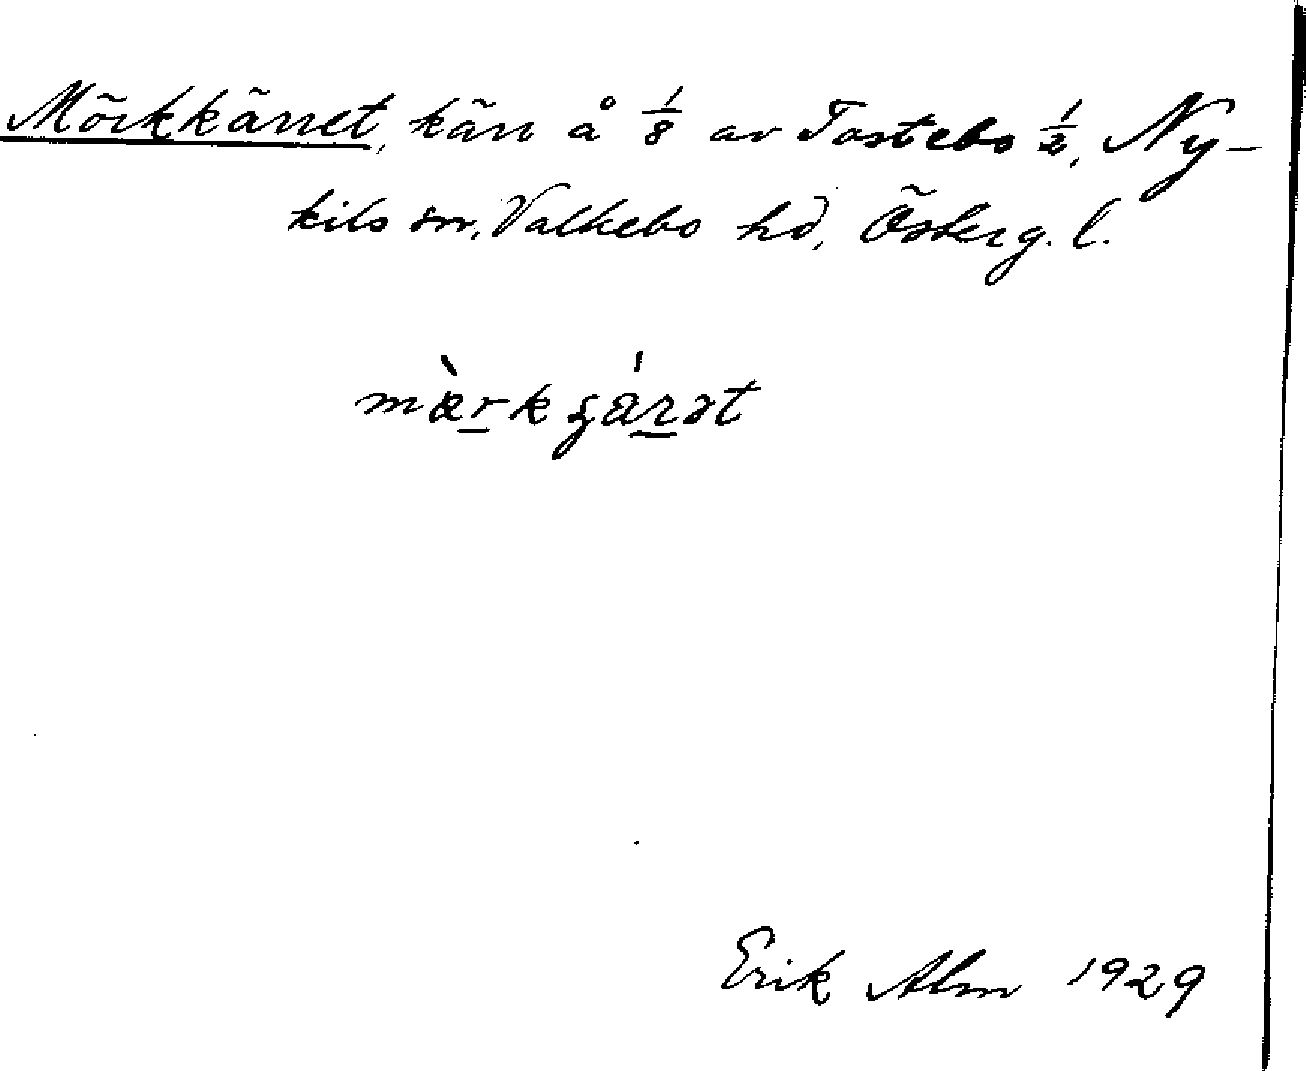 Mörkkärret, kärr å 1/8 av Tostebo 1/2, Ny-
kils sn, Valkebo hd, Österg. l.
mæ̀rkʂárət
Erik Alm 1929